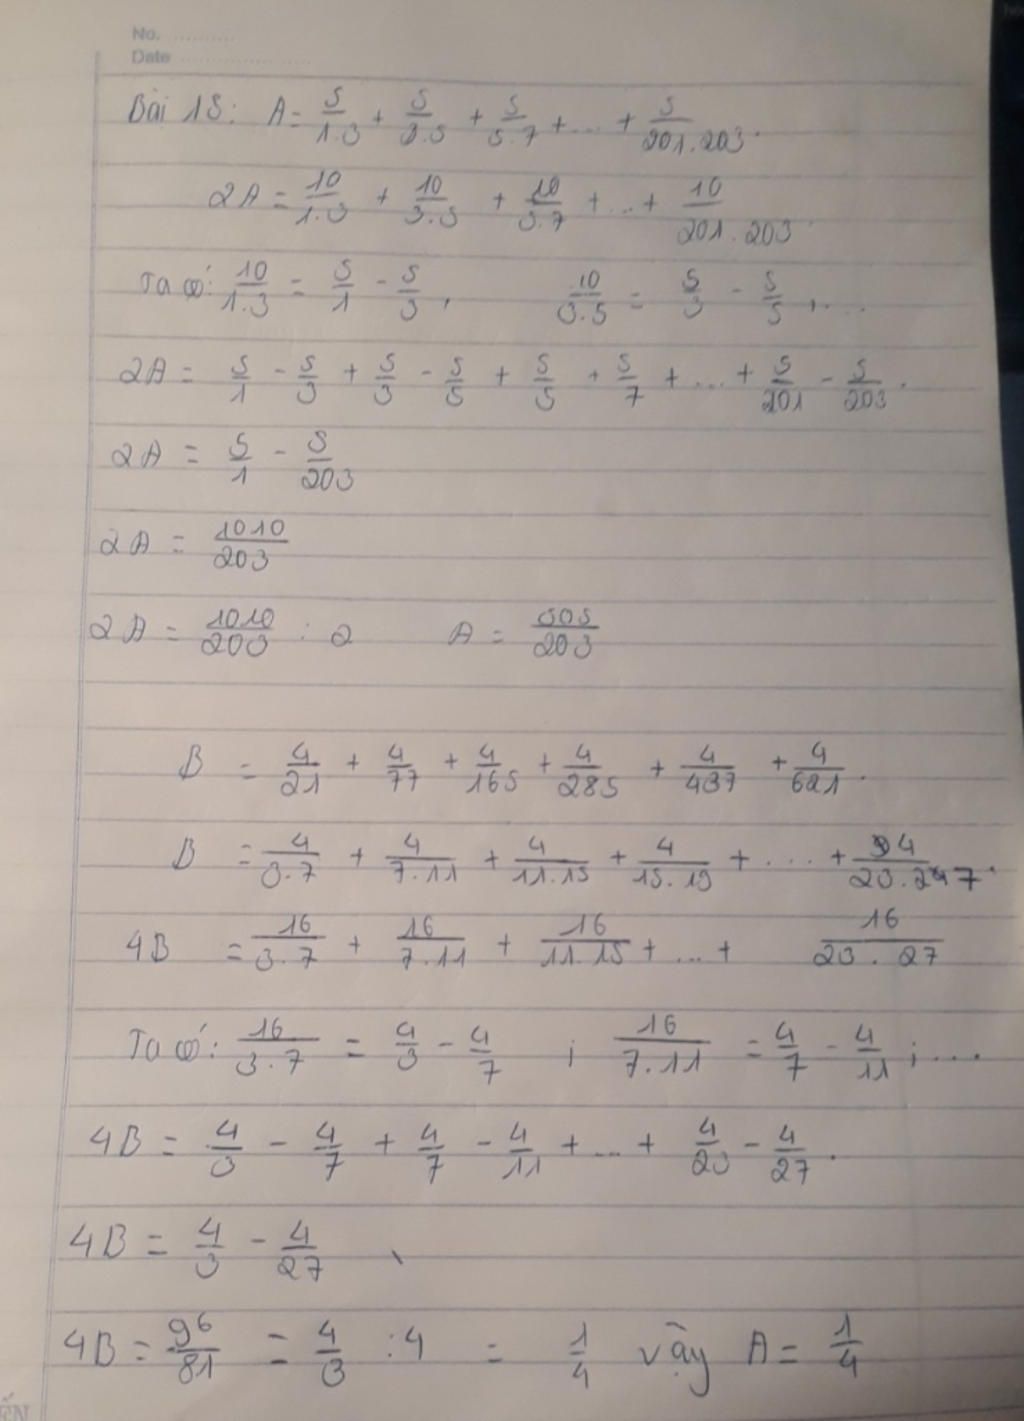 No. ..........
Date ....................
Bài 15: A = 5/1.3 + 5/3.5 + 5/5.7 + ... + 5/201.203.
2A = 10/1.3 + 10/3.5 + 10/5.7 + ... + 10/201.203.
Ta có: 10/1.3 = 5/1 - 5/3 , 10/3.5 = 5/3 - 5/5 , ...
2A = 5/1 - 5/3 + 5/3 - 5/5 + 5/5 + 5/7 + ... + 5/201 - 5/203 .
2A = 5/1 - 5/203
2A = 1010/203
2A = 1010/203 : 2 A = 505/203
B = 4/21 + 4/77 + 4/165 + 4/285 + 4/437 + 4/621 .
B = 4/3.7 + 4/7.11 + 4/11.15 + 4/15.19 + .... + 4/23.27.
4B = 16/3.7 + 16/7.11 + 16/11.15 + ... + 16/23.27
Ta có: 16/3.7 = 4/3 - 4/7 ; 16/7.11 = 4/7 - 4/11 ; ...
4B = 4/3 - 4/7 + 4/7 - 4/11 + ... + 4/23 - 4/27 .
4B = 4/3 - 4/27
4B = 96/81 = 4/3 : 4 = 1/4 vậy A = 1/4
ẾN